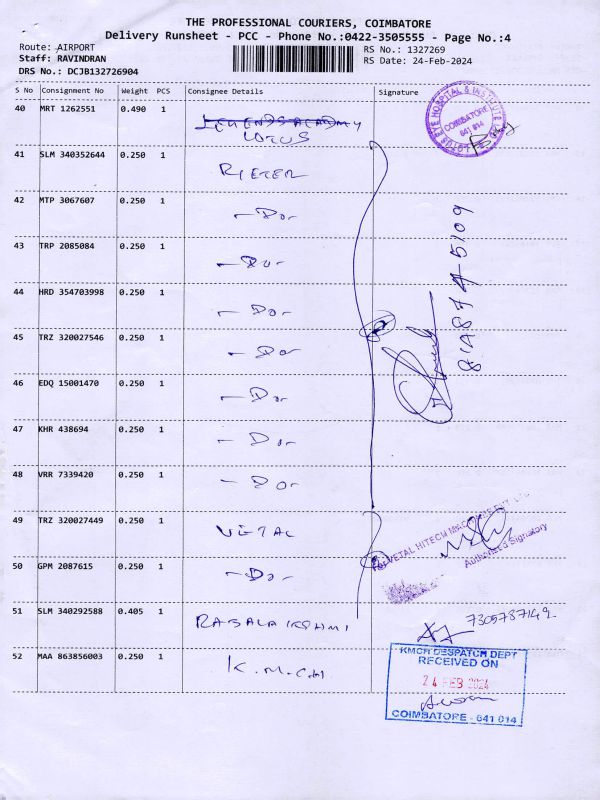 THE PROFESSIONAL COURIERS, COIMBATORE
Delivery Runsheet - PCC - Phone No.:0422-3505555 - Page No.:4
Route: AIRPORT
Staff: RAVINDRAN
DRS No.: DCJB132726904
RS No.: 1327269
RS Date: 24-Feb-2024
S No Consignment No Weight PCS Consignee Details Signature
40 MRT 1262551 0.490 1 LOTUS
EYE HOSPITAL & INSTITUTE
COIMBATORE
641 014
LOTUS
41 SLM 340352644 0.250 1 RIETER
42 MTP 3067607 0.250 1 -Do-
43 TRP 2085084 0.250 1 -Do-
44 HRD 354703998 0.250 1 -Do-
45 TRZ 320027546 0.250 1 -Do-
46 EDQ 15001470 0.250 1 -Do-
47 KHR 438694 0.250 1 -Do-
48 VRR 7339420 0.250 1 -Do-
49 TRZ 320027449 0.250 1 VETAL
For VETAL HITECH
Authorised Signatory
50 GPM 2087615 0.250 1 -Do-
51 SLM 340292588 0.405 1 RAJALAKSHMI
52 MAA 863856003 0.250 1 K.M.C.H
KMCH DESPATCH DEPT
RECEIVED ON
24 FEB 2024
COIMBATORE - 641 014